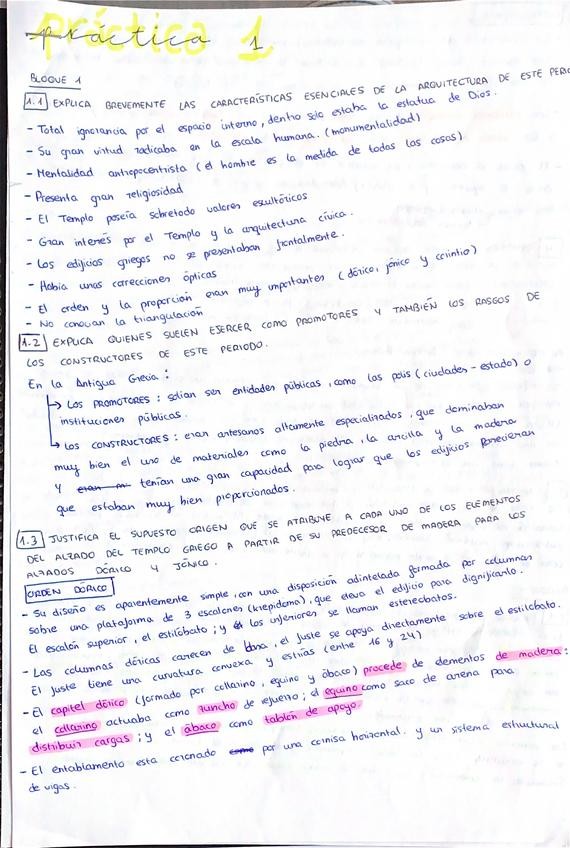 práctica 1
BLOQUE 1
1.1 EXPLICA BREVEMENTE LAS CARACTERÍSTICAS ESENCIALES DE LA ARQUITECTURA DE ESTE PERIO
- Total ignorancia por el espacio interno, dentro solo estaba la estatua de Dios.
- Su gran virtud radicaba en la escala humana. (monumentalidad)
- Mentalidad antropocentrista (el hombre es la medida de todas las cosas)
- Presenta gran religiosidad
- El Templo poseía sobretodo valores escultóricos
- Gran interés por el Templo y la arquitectura cívica.
- Los edificios griegos no se presentaban frontalmente.
- Había unas correcciones ópticas
- El orden y la proporción eran muy importantes (dórico, jónico y corintio)
- No conocían la triangulación
1.2 EXPLICA QUIENES SUELEN ESERCER COMO PROMOTORES Y TAMBIÉN LOS RASGOS DE
LOS CONSTRUCTORES DE ESTE PERIODO.
En la Antigua Grecia:
↳ LOS PROMOTORES: solían ser entidades públicas, como las polis (ciudades-estado) o
instituciones públicas.
↳ LOS CONSTRUCTORES: eran artesanos altamente especializados, que dominaban
muy bien el uso de materiales como la piedra, la arcilla y la madera
y tenían una gran capacidad para lograr que los edificios parecieran
que estaban muy bien proporcionados.
1.3 JUSTIFICA EL SUPUESTO ORIGEN QUE SE ATRIBUYE A CADA UNO DE LOS ELEMENTOS
DEL ALZADO DEL TEMPLO GRIEGO A PARTIR DE SU PREDECESOR DE MADERA PARA LOS
ALZADOS DÓRICO Y JÓNICO.
ORDEN DÓRICO
- Su diseño es aparentemente simple, con una disposición adintelada formada por columnas
sobre una plataforma de 3 escalones (krepidoma), que eleva el edificio para dignificarlo.
El escalón superior, el estilóbato; y los inferiores se llaman estereobatos.
- Las columnas dóricas carecen de basa, el fuste se apoya directamente sobre el estilobato.
El fuste tiene una curvatura convexa y estrías (entre 16 y 24)
- El capitel dórico (formado por collarino, equino y ábaco) procede de elementos de madera:
el collarino actuaba como zuncho de refuerzo; el equino como saco de arena para
distribuir cargas; y el ábaco como tablón de apoyo.
- El entablamento esta coronado por una cornisa horizontal. y un sistema estructural
de vigas.